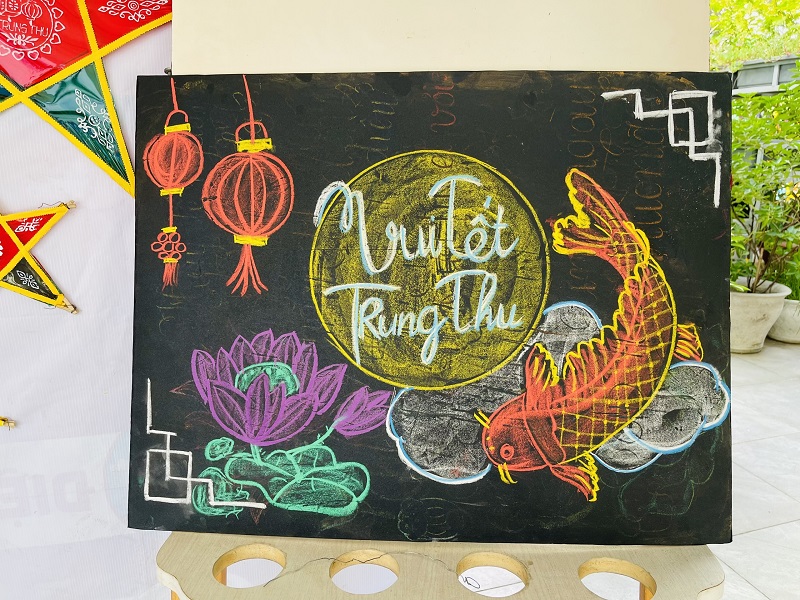 TRUNG THU
Vui Tết
Trung Thu